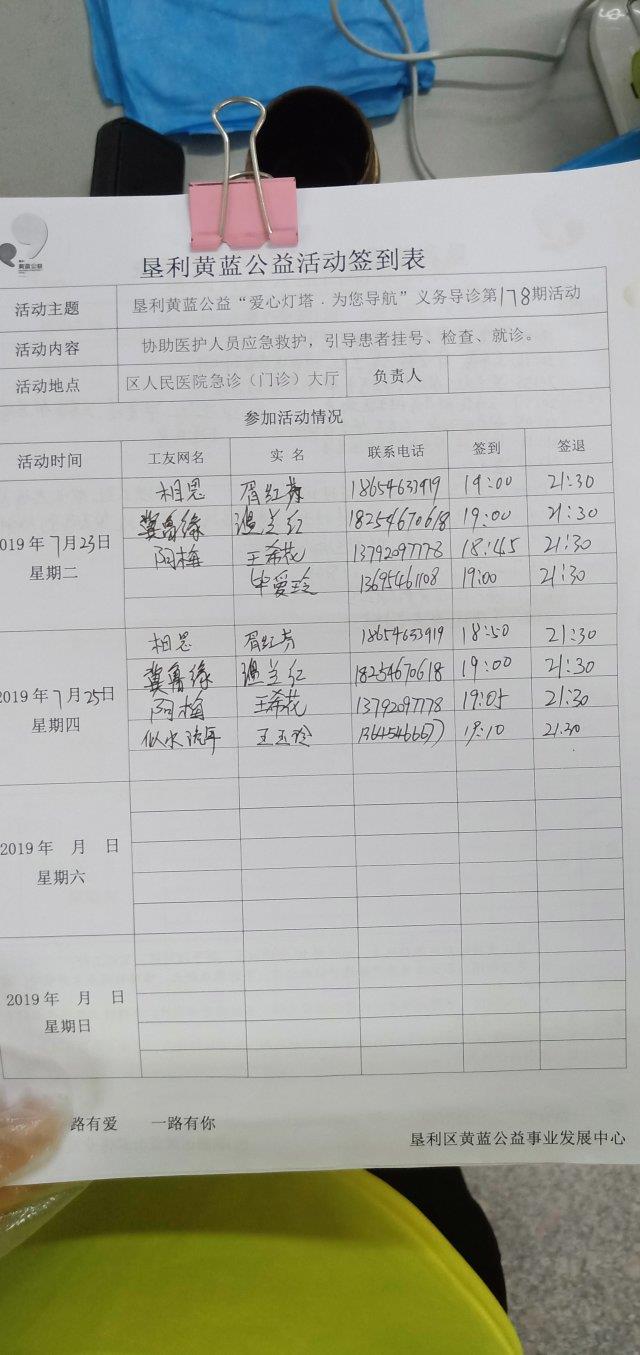 黄蓝公益
垦利黄蓝公益活动签到表
活动主题 垦利黄蓝公益“爱心灯塔．为您导航”义务导诊第178期活动
活动内容 协助医护人员应急救护，引导患者挂号、检查、就诊。
活动地点 区人民医院急诊（门诊）大厅 负责人
参加活动情况
活动时间 工友网名 实 名 联系电话 签到 签退
019年7月23日
星期二
相思 胥红芳 18654633919 19:00 21:30
冀鲁缘 兰红 18254670618 19:00 21:30
阿梅 王希花 13792097778 18:45 21:30
爱玲 13695461108 19:00 21:30
2019年7月25日
星期四
相思 胥红芳 18654633919 18:50 21:30
冀鲁缘 兰红 18254670618 19:00 21:30
阿梅 王希花 13792097778 19:05 21:30
似水流年 王玉玲 19:10 21:30
2019年 月 日
星期六
2019年 月 日
星期日
路有爱 一路有你
垦利区黄蓝公益事业发展中心